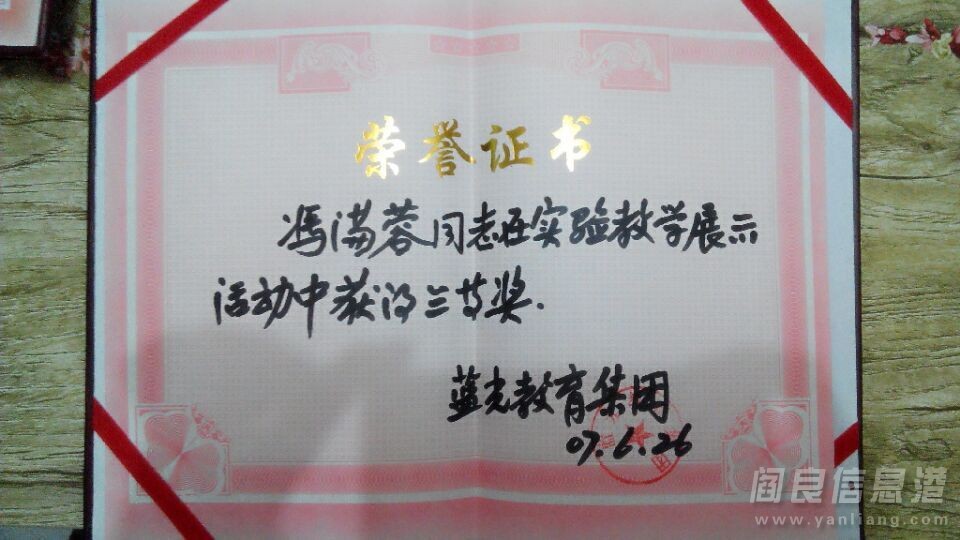 荣誉证书
冯满蓉同志在实验教学展示
活动中获得三等奖.
蓝光教育集团
07.6.26
阎良信息港
www.yanliang.com